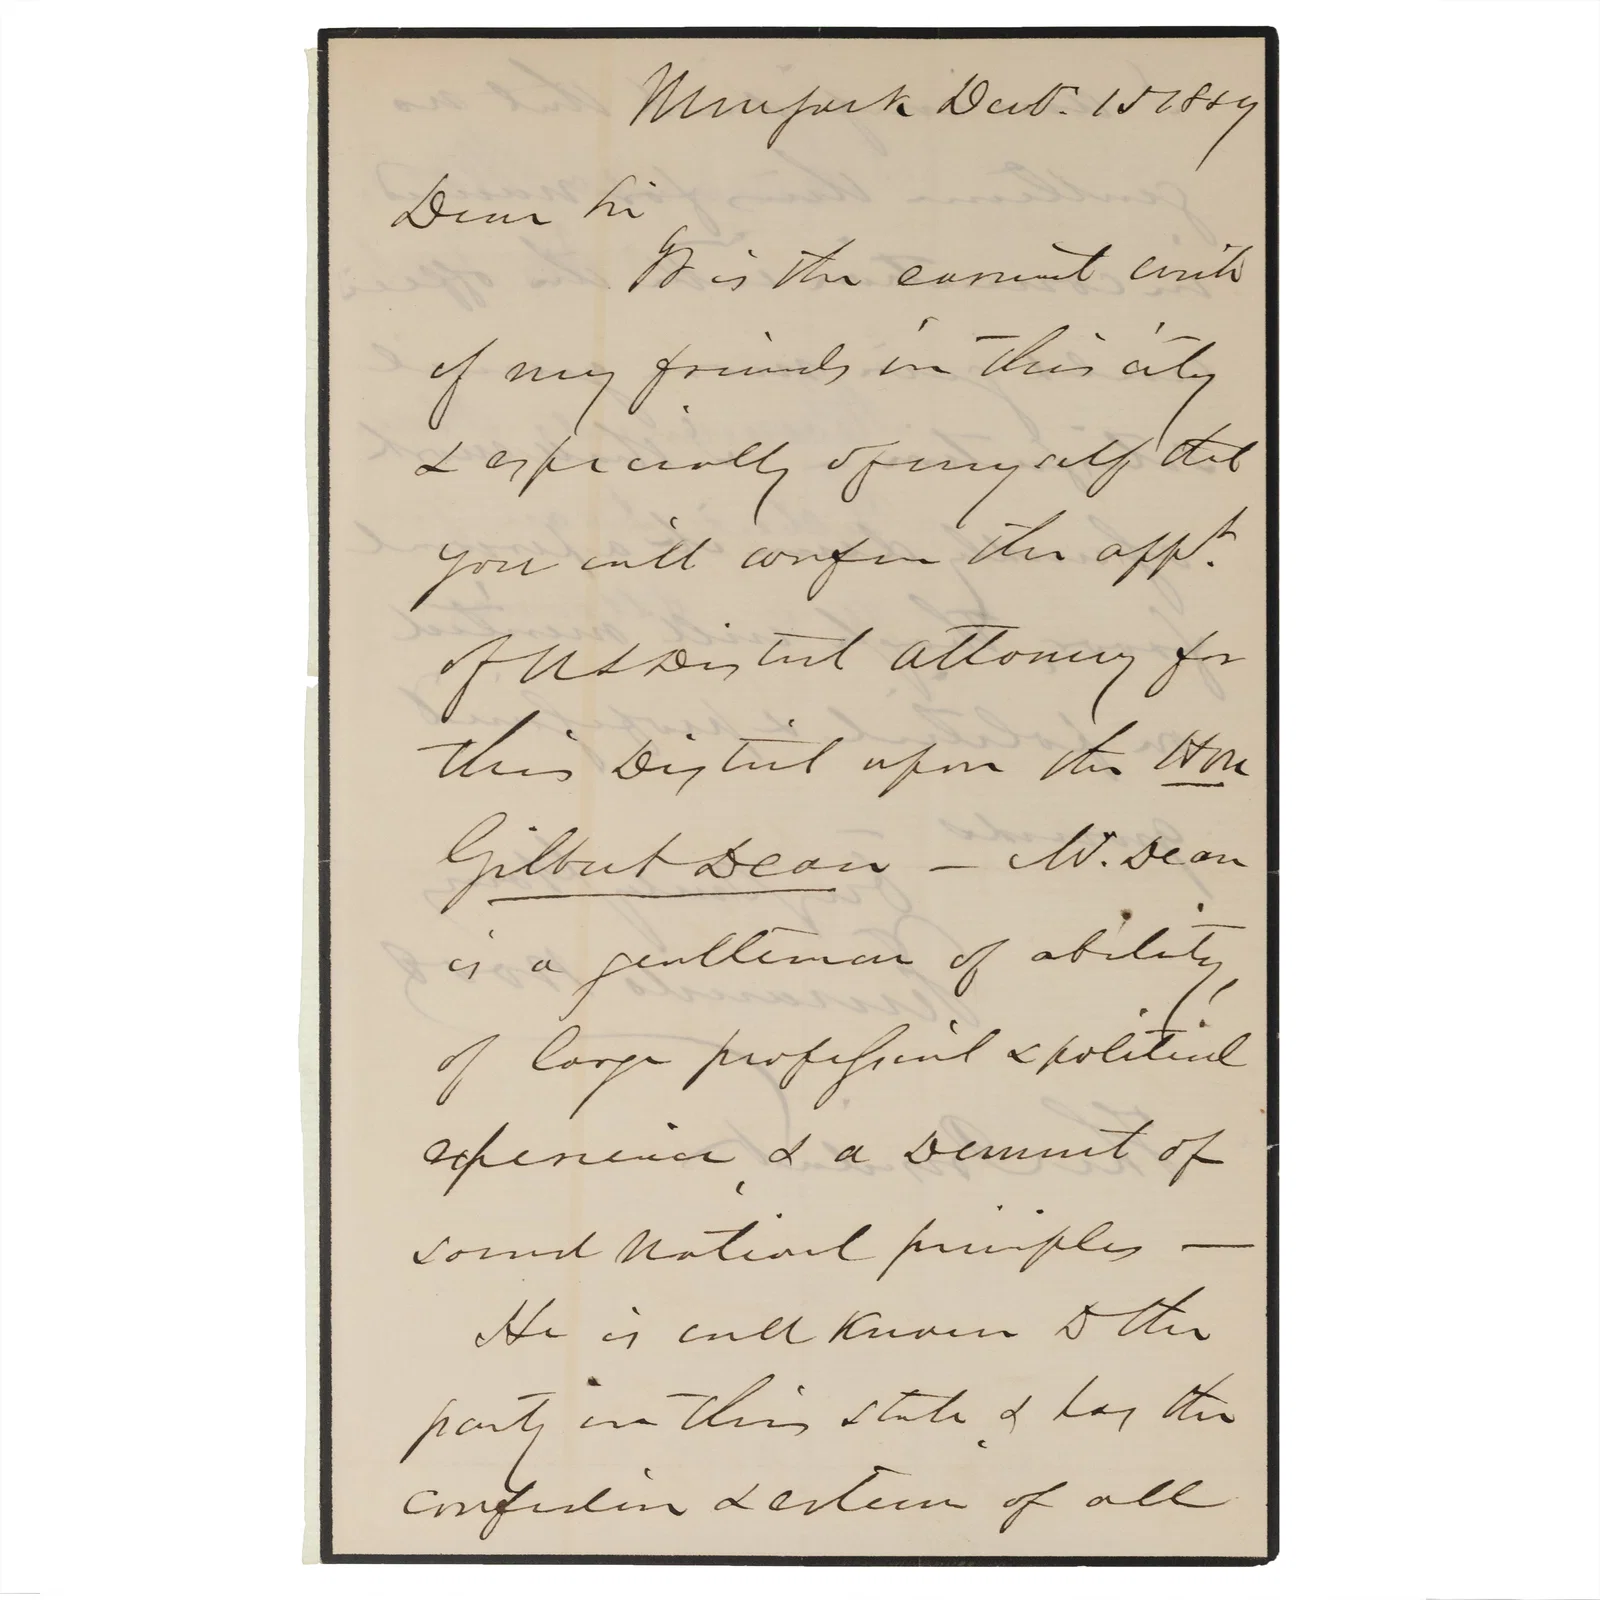 New York Dec 15 1859
Dear Sir
It is the earnest wish
of my friends in this city
& especially of myself, that
you will confer the appt.
of US District Attorney for
this District upon the Hon
Gilbert Dean — Mr. Dean
is a gentleman of ability,
of large professional & political
experience, & a Democrat of
sound National principles —
He is well known to the
party in this state, & has the
confidence & esteem of all